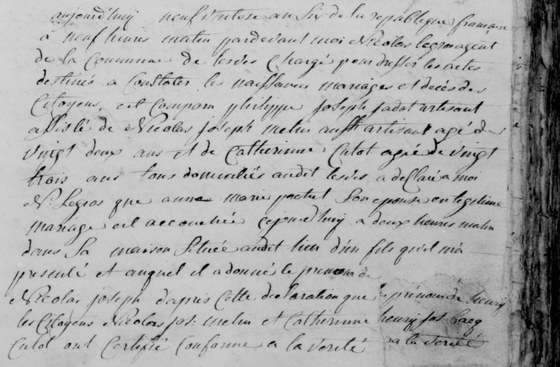 aujourdhuy neuf ventose an Six de la republique francaise
à neuf heures matin pardevant moi Nicolas Legros agent
de la Commune de chargé pour dresser les actes
destinés a Constater les naissances mariages et décès des
Citoyens, est comparu philippe Joseph artisant
assisté de Nicolas Joseph melin aussi artisant agé de
vingt deux ans et de Catherinne Culot agée de vingt
trois ans tous domiciliés audit a declaré a moi
N. Legros que anne marie Son epouse en legitime
mariage est accouchée cejourdhuy a deux heures matin
dans Sa maison Située audit lieu d'un fils qu'il m'a
presenté et auquel il a donné le prenom de
Nicolas joseph dapres cette declaration que
les Citoyens Nicolas jos. melin et Catherinne
Culot ont Certifié Conforme a la verité